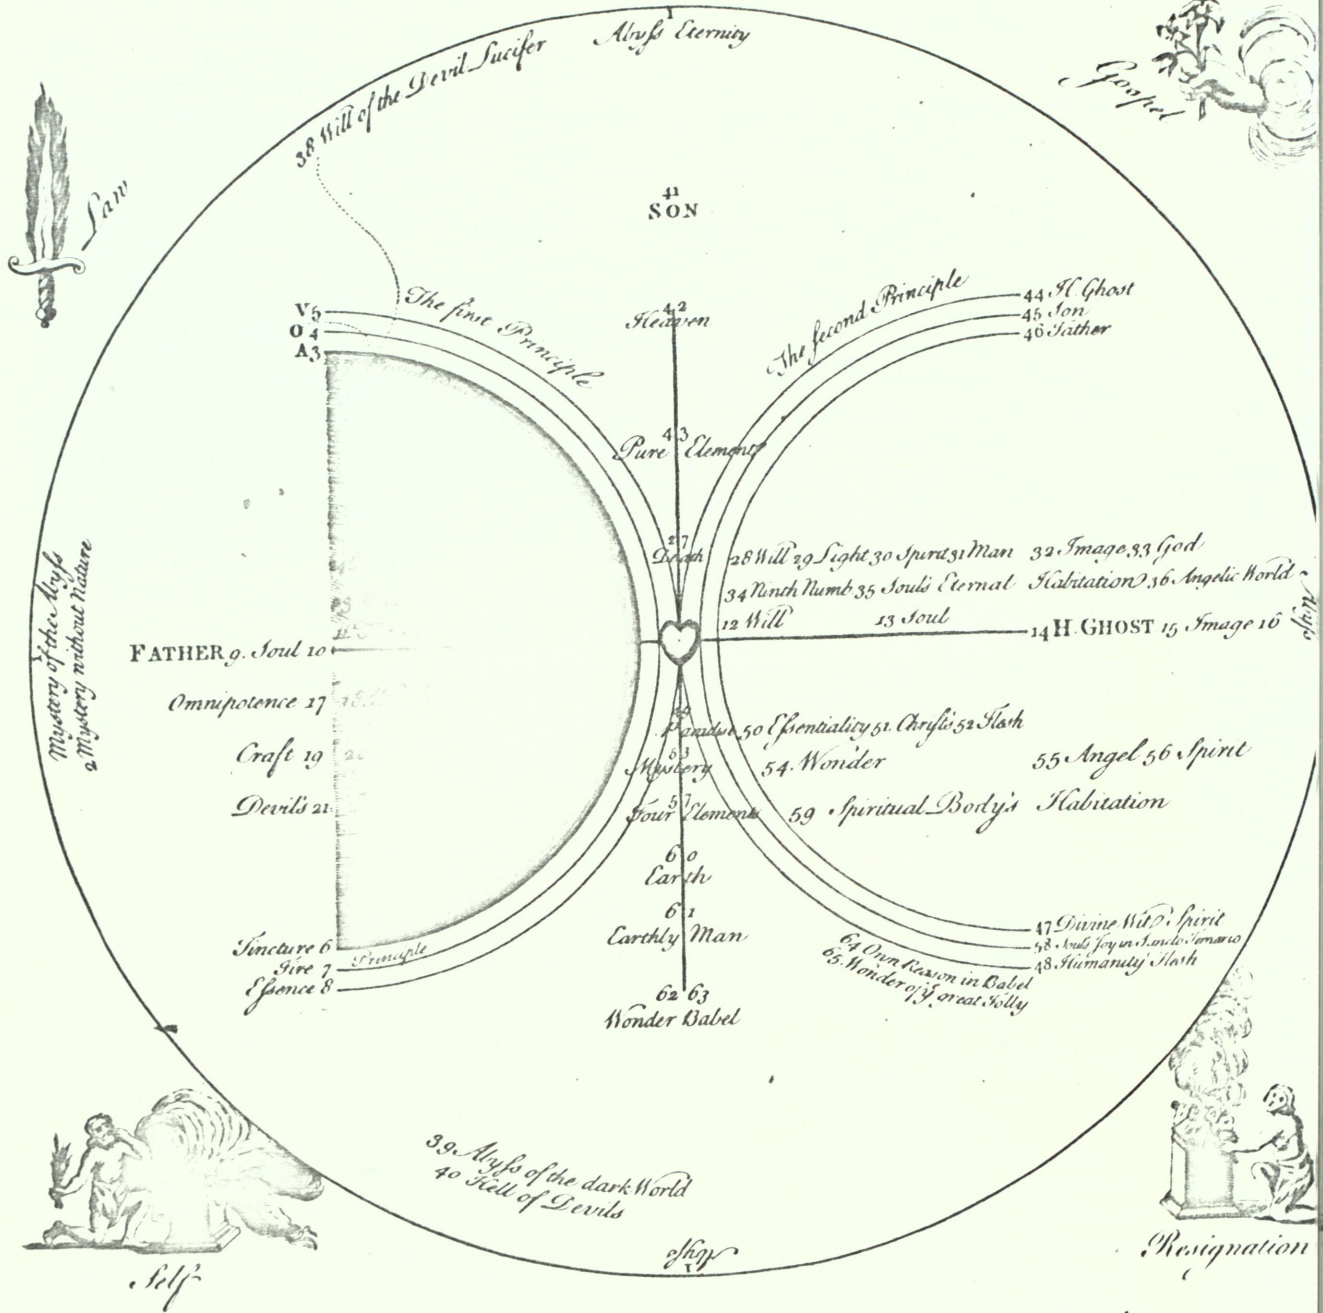 1
Abyſs Eternity
38 Will of the Devil Lucifer
Gospel
Law
41
SON
V 5
O 4
A 3
The first Principle
42
Heaven
The ſecond Principle
44 H. Ghost
45 Son
46 Father
43
Pure Element
27
Death
28 Will 29 Light 30 Spirit 31 Man 32 Image 33 God
34 Ninth Numb 35 Soul's Eternal Habitation 36 Angelic World
12 Will 13 Soul 14 H. GHOST 15 Image 16
FATHER 9. Soul 10
Mystery of the Abyſs
2 Mystery without Nature
Omnipotence 17
Craft 19
Devil's 21
Paradise 50 Eſsentiality 51. Chriſt's 52 Flesh
53
Mystery 54. Wonder 55 Angel 56 Spirit
57
Four Elements 59 Spiritual Body's Habitation
60
Earth
61
Earthly Man
62 63
Wonder Babel
Tincture 6
Fire 7
Eſsence 8
Principle
47 Divine Wit Spirit
58 Soul's Joy in Sancto Ternario
48 Humanity Flesh
64 Own Reason in Babel
65. Wonder of yͤ great Folly
39 Abyſs of the dark World
40 Hell of Devils
Abyſs
1
Self
Resignation